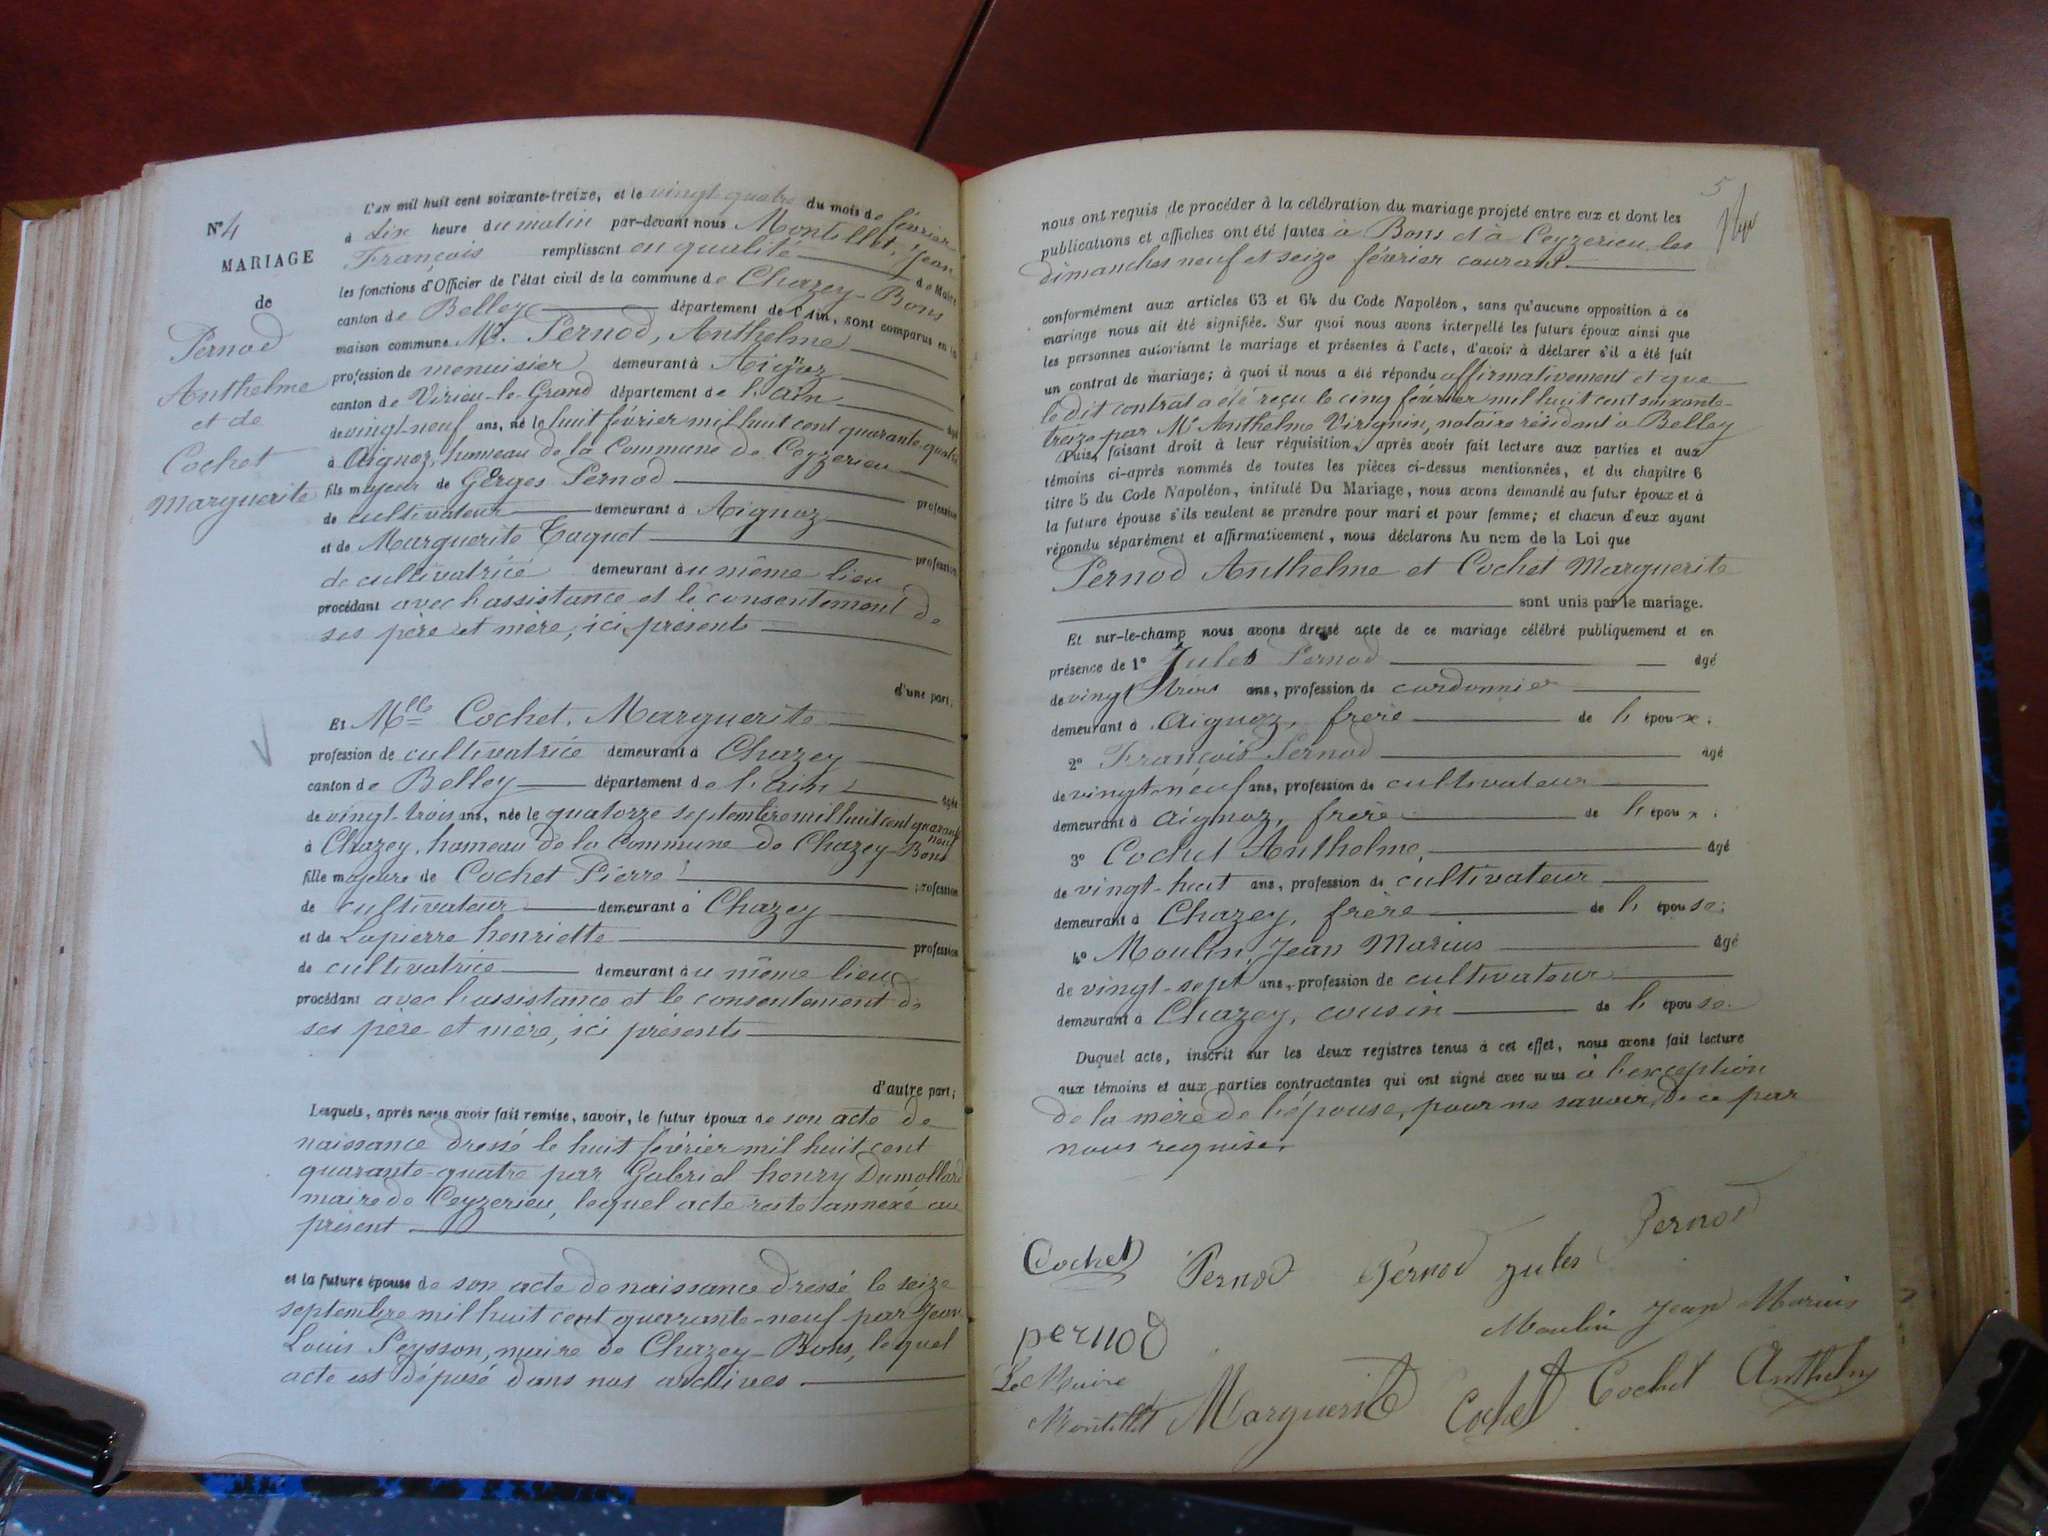 N° 4
MARIAGE
de
Pernod
Anthelme
et de
Cochet
Marguerite
L'an mil huit cent soixante-treize, et le vingt-quatre du mois de février
à dix heure du matin par-devant nous Montillet, Jean
François remplissant en qualité de Maire
les fonctions d'Officier de l'état civil de la commune de Chazey-Bons
canton de Belley département de l'Ain, sont comparus en la
maison commune Mr. Pernod, Anthelme
profession de menuisier demeurant à Aignoz
canton de Virieu-le-Grand département de l'ain âgé
de vingt-neuf ans, né le huit février mil huit cent quarante-quatre
à Aignoz, hameau de la Commune de Ceyzerieu
fils majeur de Gërges Pernod profession
de cultivateur demeurant à Aignoz
et de Marguerite Taquet profession
de cultivatrice demeurant au même lieu
procédant avec l'assistance et le consentement de
ses père et mère, ici présents
d'une part;
Et Mlle Cochet, Marguerite
profession de cultivatrice demeurant à Chazey
canton de Belley département de l'ain âgée
de vingt-trois ans, née le quatorze septembre mil huit cent quarante
neuf
à Chazey, hameau de la Commune de Chazey-Bons
fille majeure de Cochet Pierre profession
de cultivateur demeurant à Chazey
et de Lapierre henriette profession
de cultivatrice demeurant au même lieu
procédant avec l'assistance et le consentement de
ses père et mère, ici présents
d'autre part;
Lesquels, après nous avoir fait remise, savoir, le futur époux de son acte de
naissance dressé le huit février mil huit cent
quarante-quatre par Gabriel henry Dumollard
maire de Ceyzerieu, lequel acte reste annexé au
présent
et la future épouse de son acte de naissance dressé le seize
septembre mil huit cent quarante-neuf par Jean
Louis Peysson, maire de Chazey-Bons, lequel
acte est déposé dans nos archives
5
nous ont requis de procéder à la célébration du mariage projeté entre eux et dont les
publications et affiches ont été faites à Bons et à Ceyzerieu les
dimanches neuf et seize février courant
conformément aux articles 63 et 64 du Code Napoléon, sans qu'aucune opposition à ce
mariage nous ait été signifiée. Sur quoi nous avons interpellé les futurs époux ainsi que
les personnes autorisant le mariage et présentes à l'acte, d'avoir à déclarer s'il a été fait
un contrat de mariage; à quoi il nous a été répondu affirmativement et que
le dit contrat a été reçu le cinq février mil huit cent soixante-
treize par Me Anthelme Virignin, notaire résidant à Belley
Puis, faisant droit à leur réquisition, après avoir fait lecture aux parties et aux
témoins ci-après nommés de toutes les pièces ci-dessus mentionnées, et du chapitre 6
titre 5 du Code Napoléon, intitulé Du Mariage, nous avons demandé au futur époux et à
la future épouse s'ils veulent se prendre pour mari et pour femme; et chacun d'eux ayant
répondu séparément et affirmativement, nous déclarons Au nom de la Loi que
Pernod Anthelme et Cochet Marguerite
sont unis par le mariage.
Et sur-le-champ nous avons dressé acte de ce mariage célébré publiquement et en
présence de 1° Jules Pernod âgé
de vingt trois ans, profession de cordonnier
demeurant à Aignoz, frère de l'époux;
2° François Pernod âgé
de vingt-neuf ans, profession de cultivateur
demeurant à Aignoz, frère de l'époux;
3° Cochet Anthelme, âgé
de vingt-huit ans, profession de cultivateur
demeurant à Chazey, frère de l'épouse;
4° Moulin, Jean Marius âgé
de vingt-sept ans, profession de cultivateur
demeurant à Chazey, cousin de l'épouse.
Duquel acte, inscrit sur les deux registres tenus à cet effet, nous avons fait lecture
aux témoins et aux parties contractantes qui ont signé avec nous à l'exception
de la mère de l'épouse, pour ne savoir, de ce par
nous requise.
Cochet Pernod Pernod jules Pernod
pernod Moulin Jean Marius
Le Maire
Montillet Marguerite Cochet Cochet Anthelm